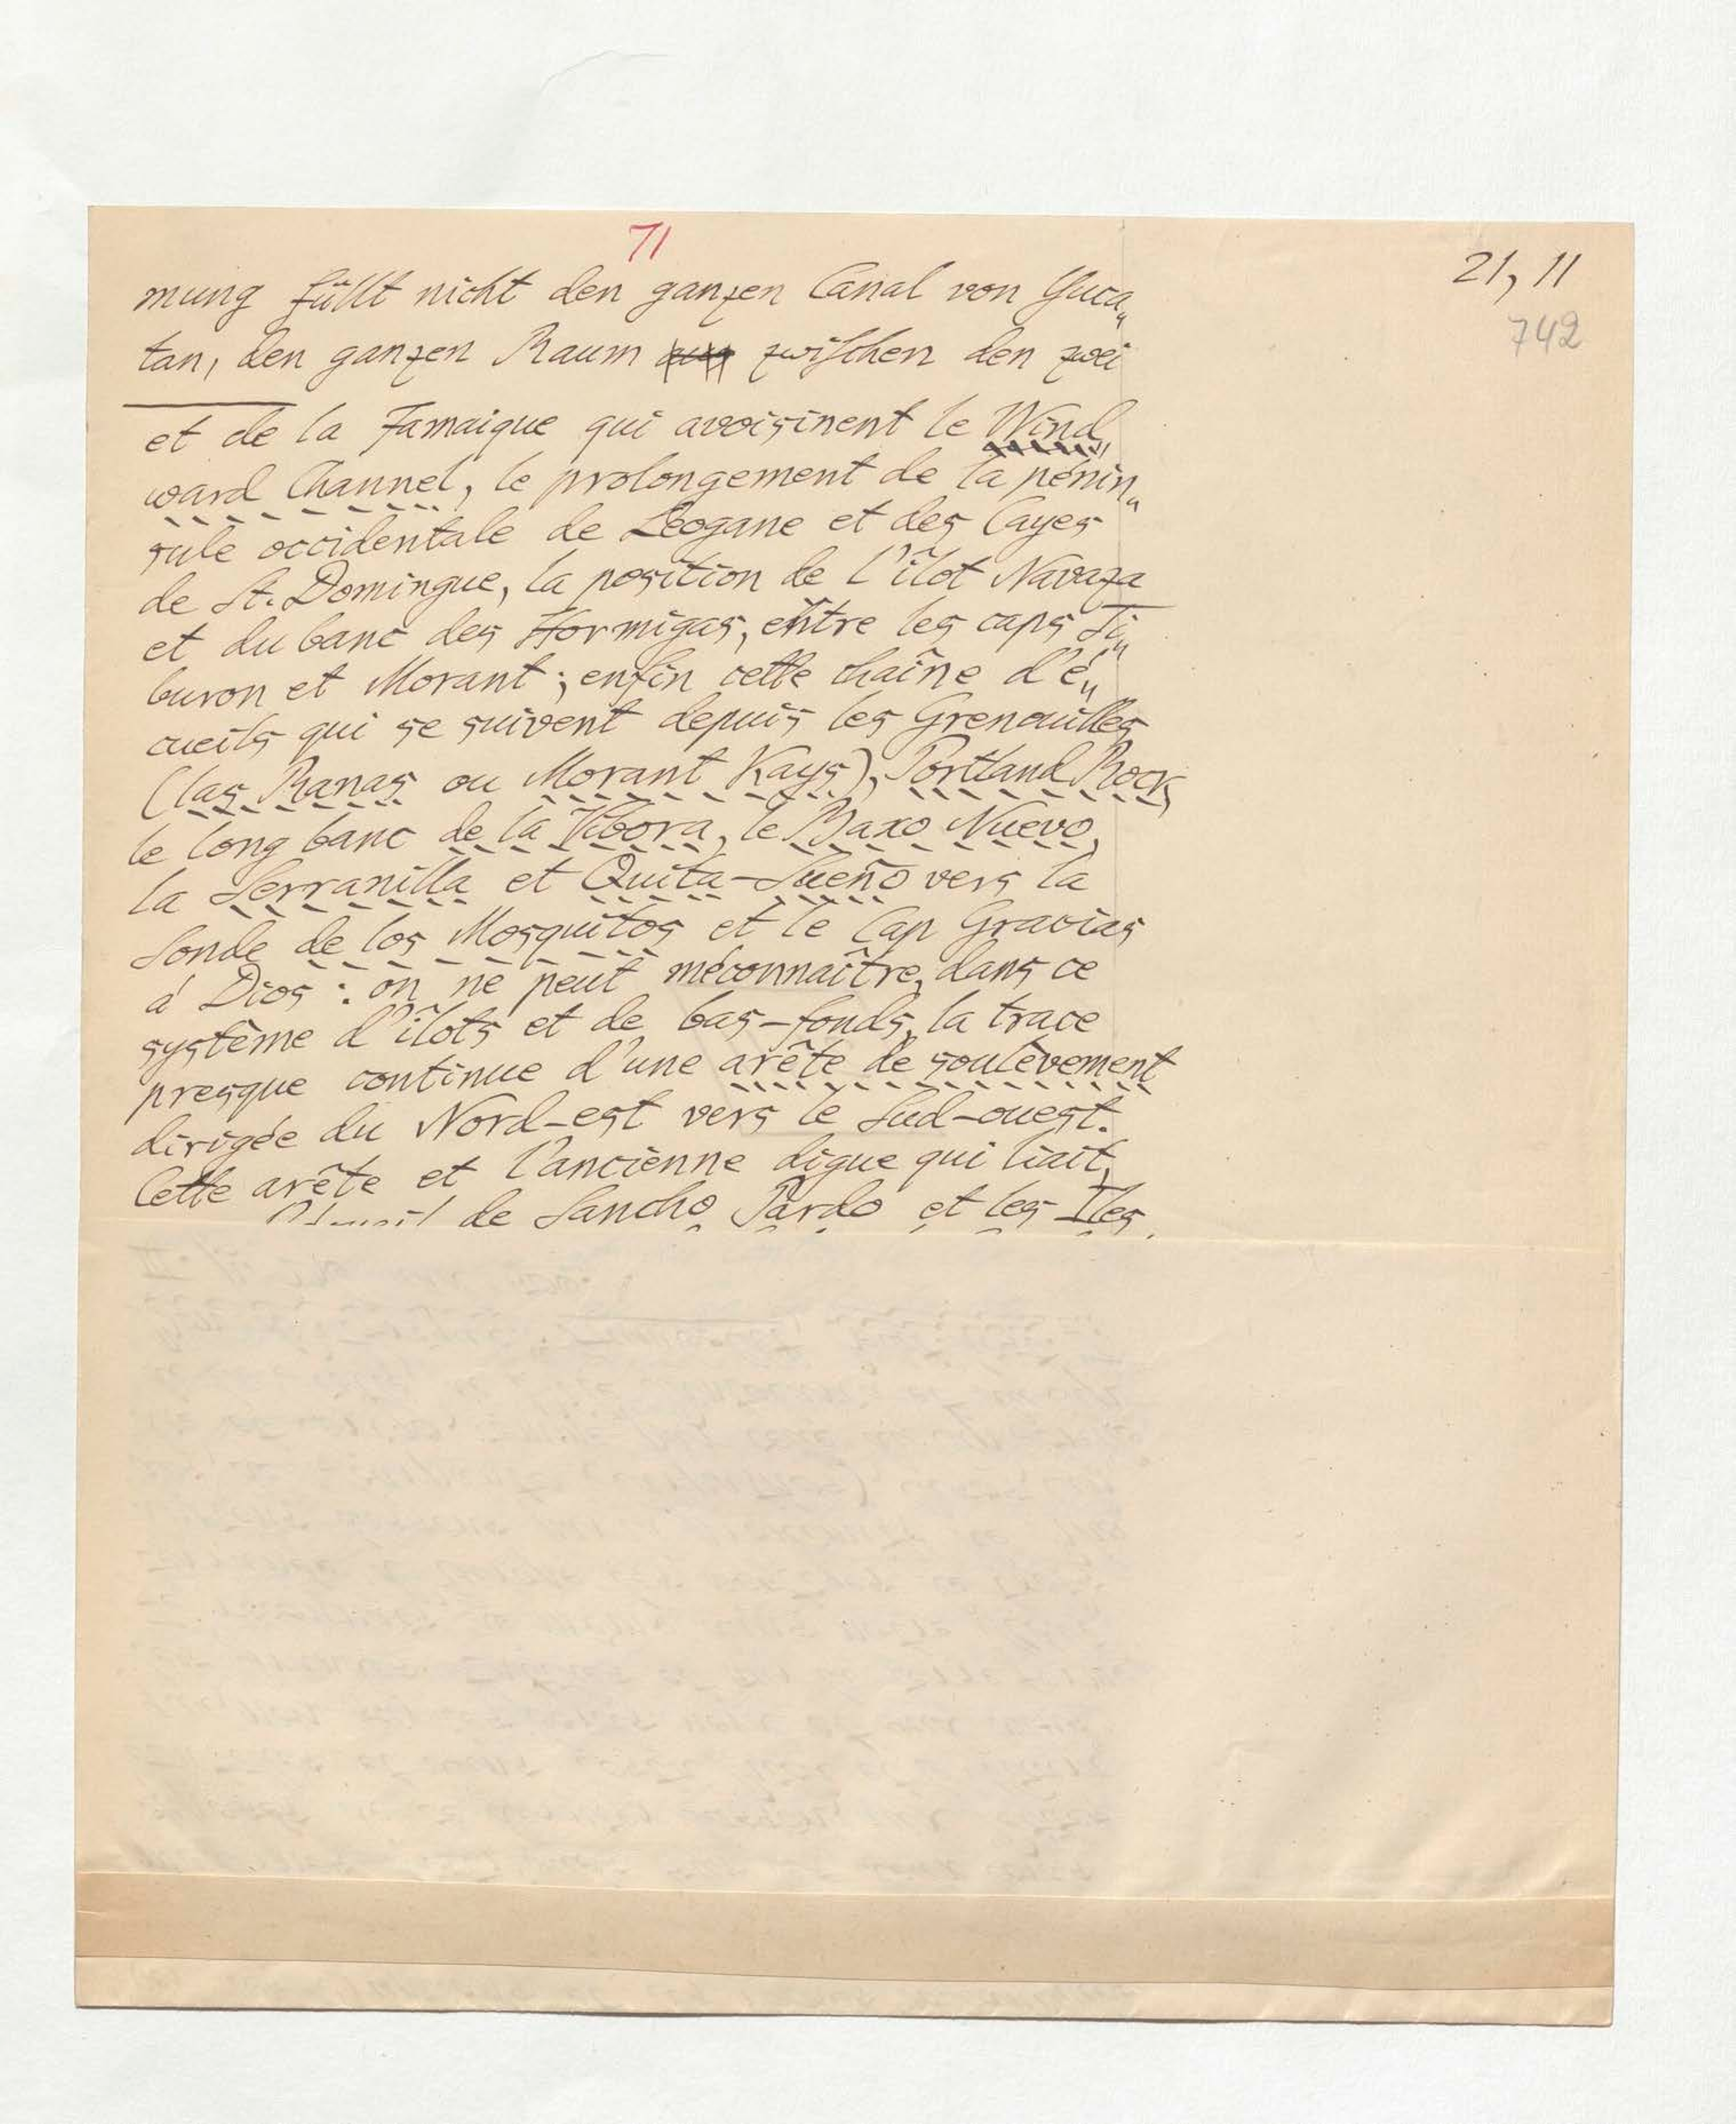 71
21, 11
742
mung füllt nicht den ganzen Canal von Yuca„
tan, den ganzen Raum zwischen den zwei
et de la Jamaique qui avoisinent le Wind„
ward Channel, le prolongement de la pénin„
sule occidentale de Léogane et des Cayes
de St. Domingue, la position de l'îlot Navaza
et du banc des Hormigas, entre les caps Ti„
buron et Morant; enfin cette chaîne d'é„
cueils qui se suivent depuis les Grenouilles
(las Ranas ou Morant Kays), Portland Rock,
le long banc de la Vibora, le Baxo Nuevo,
la Serranilla et Quita-Sueño vers la
Sonde de los Mosquitos et le Cap Gracias
á Dios: on ne peut méconnaître, dans ce
système d'îlots et de bas-fonds, la trace
presque continue d'une arête de soulèvement
dirigée du Nord-est vers le Sud-ouest.
Cette arête et l'ancienne digue qui liait,
de Sancho Pardo et les Iles